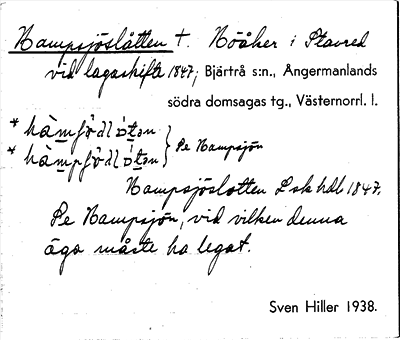 Hampsjöslåtten †. Nöåker i Stavred
vid lagaskifte 1847; Bjärtrå s:n., Ångermanlands
södra domsagas tg., Västernorrl. l.
Se Hampsjön
Hampsjöslotten L sk hdl 1847.
Se Hampsjön, vid vilken denna
äga måste ha legat.
Sven Hiller 1938.